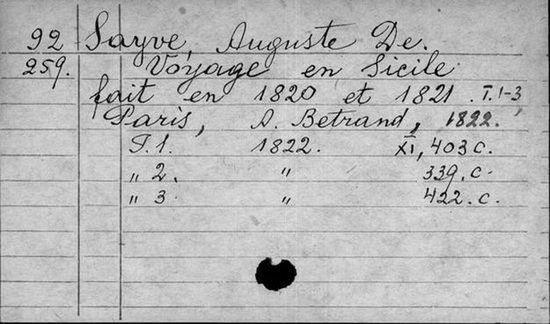 92 Sayve, Auguste De.
259. Voyage en Sicile
fait en 1820 et 1821. T. 1-3
Paris, A. Betrand, 1822.
T. 1. 1822. XI, 403 c.
" 2. " 339. c.
" 3 " 422. c.